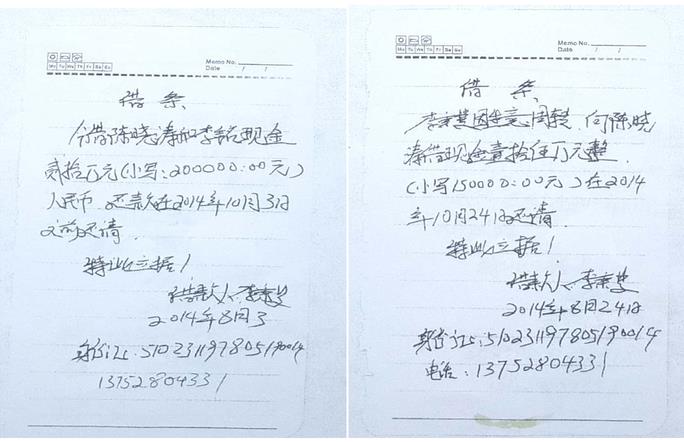 Mo Tu We Th Fr Sa Su
Memo No.
Date / /
借条
今借陈晓涛和李铭现金
贰拾万元(小写:200000:00元)
人民币.还款在2014年10月3日
之前还清.
特此立据!
借款人.
2014年8月3
身份证:510231197805190014
13752804331
Mo Tu We Th Fr Sa Su
Memo No.
Date / /
借条
因生意周转.向陈晓
涛借现金壹拾伍万元整.
(小写150000:00元)在2014
年10月24日还清.
特此立据!
借款人.
2014年8月24日
身份证:510231197805190014
电话:13752804331